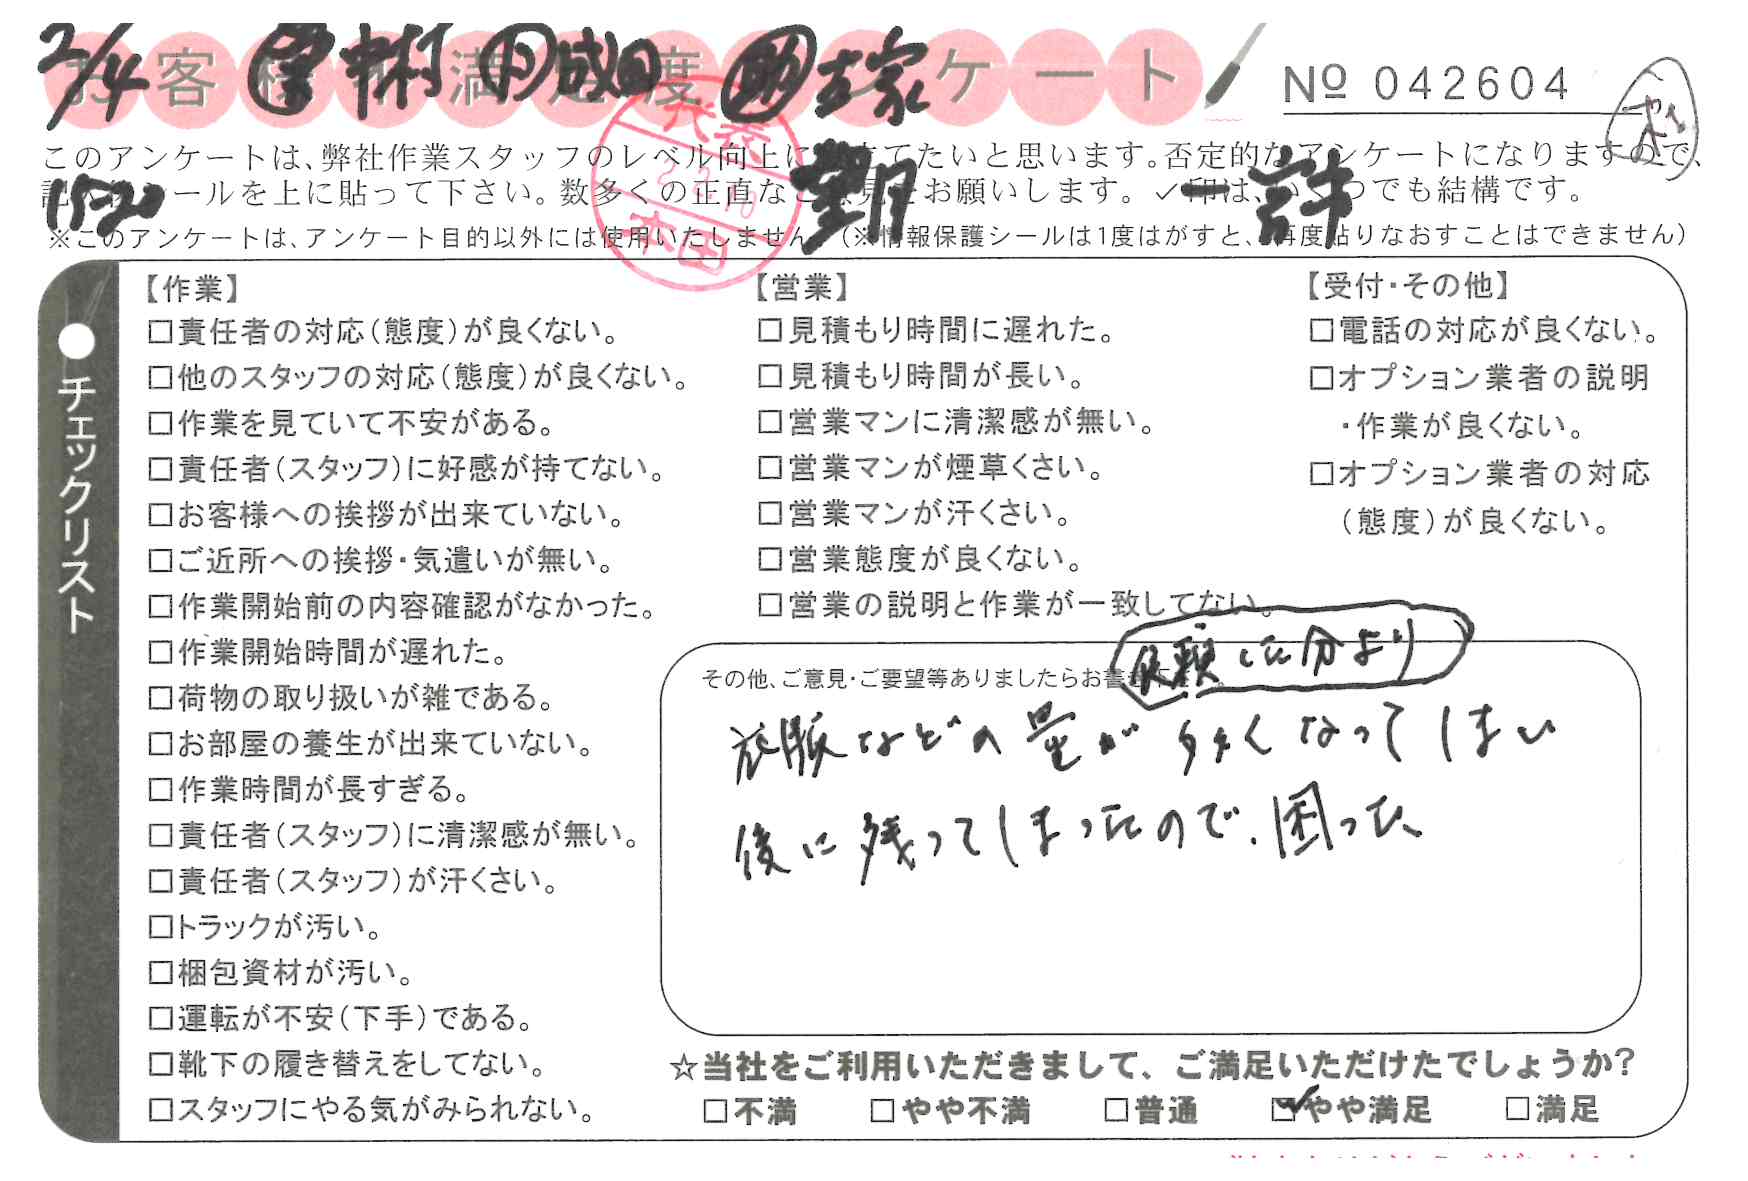 2/4 営 中村 作 成田 助 大家
お客様 満足度 ケート
№ 042604
このアンケートは、弊社作業スタッフのレベル向上に てたいと思います。否定的なアンケートになりますので、
ールを上に貼って下さい。数多くの正直なご 見をお願いします。✓印は、いくつでも結構です。
1520
望月
代表
22.2.10
本田
※このアンケートは、アンケート目的以外には使用いたしません。(※情報保護シールは1度はがすと、再度貼りなおすことはできません)
●チェックリスト
【作業】
□責任者の対応(態度)が良くない。
□他のスタッフの対応(態度)が良くない。
□作業を見ていて不安がある。
□責任者(スタッフ)に好感が持てない。
□お客様への挨拶が出来ていない。
□ご近所への挨拶・気遣いが無い。
□作業開始前の内容確認がなかった。
□作業開始時間が遅れた。
□荷物の取り扱いが雑である。
□お部屋の養生が出来ていない。
□作業時間が長すぎる。
□責任者(スタッフ)に清潔感が無い。
□責任者(スタッフ)が汗くさい。
□トラックが汚い。
□梱包資材が汚い。
□運転が不安(下手)である。
□靴下の履き替えをしてない。
□スタッフにやる気がみられない。
【営業】
□見積もり時間に遅れた。
□見積もり時間が長い。
□営業マンに清潔感が無い。
□営業マンが煙草くさい。
□営業マンが汗くさい。
□営業態度が良くない。
□営業の説明と作業が一致してない。
【受付・その他】
□電話の対応が良くない。
□オプション業者の説明
・作業が良くない。
□オプション業者の対応
(態度)が良くない。
その他、ご意見・ご要望等ありましたらお書き下さい。
依頼した分より
衣服などの量が多くなってしまい
後に残ってしまったので、困った
☆当社をご利用いただきまして、ご満足いただけたでしょうか?
□不満 □やや不満 □普通 ☑やや満足 □満足